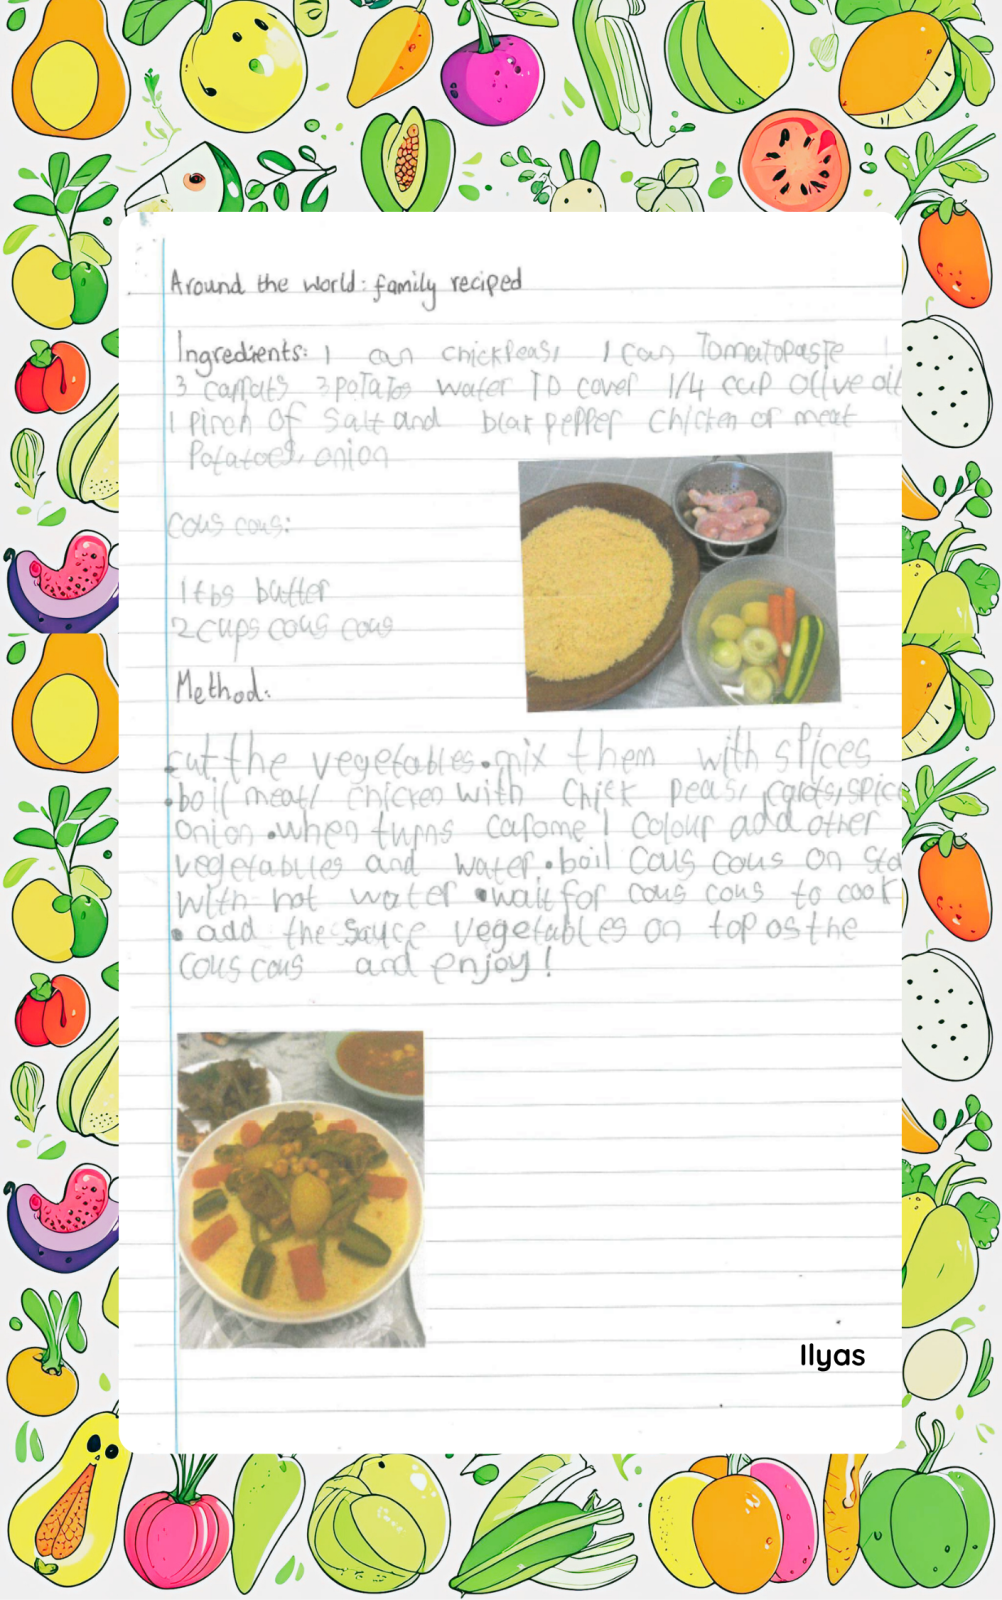 Around the world: family reciped
Ingredients: 1 can chickpeas, 1 can Tomatopaste
3 carrots 3 potatos water TO cover 1/4 cup olive oil
1 Pinch Of Salt and blak pepper Chicken or meat
Potatoes, onion
Cous cous:
1 tbs butter
2 cups cous cous
Method:
•cut the vegetables•mix them with spices
•boil meat/ chicken with Chick peas,
onion •when turns colour add other
vegetables and water•boil Cous cous on
with hot water •wait for cous cous to cook
• add the sauce vegetables on top os the
Cous cous and enjoy!
Ilyas